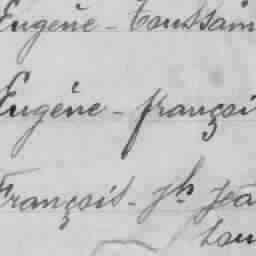 Eugène - Toussain
Eugène - françoi
François - jh jea
Lou